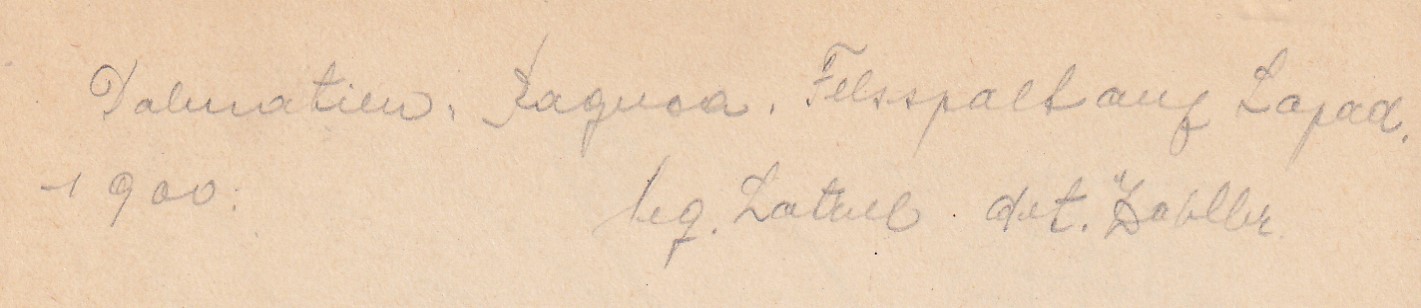 Dalmatien. Ragusa. Felsspalt auf Lapad.
1900. leg. Latzel det.